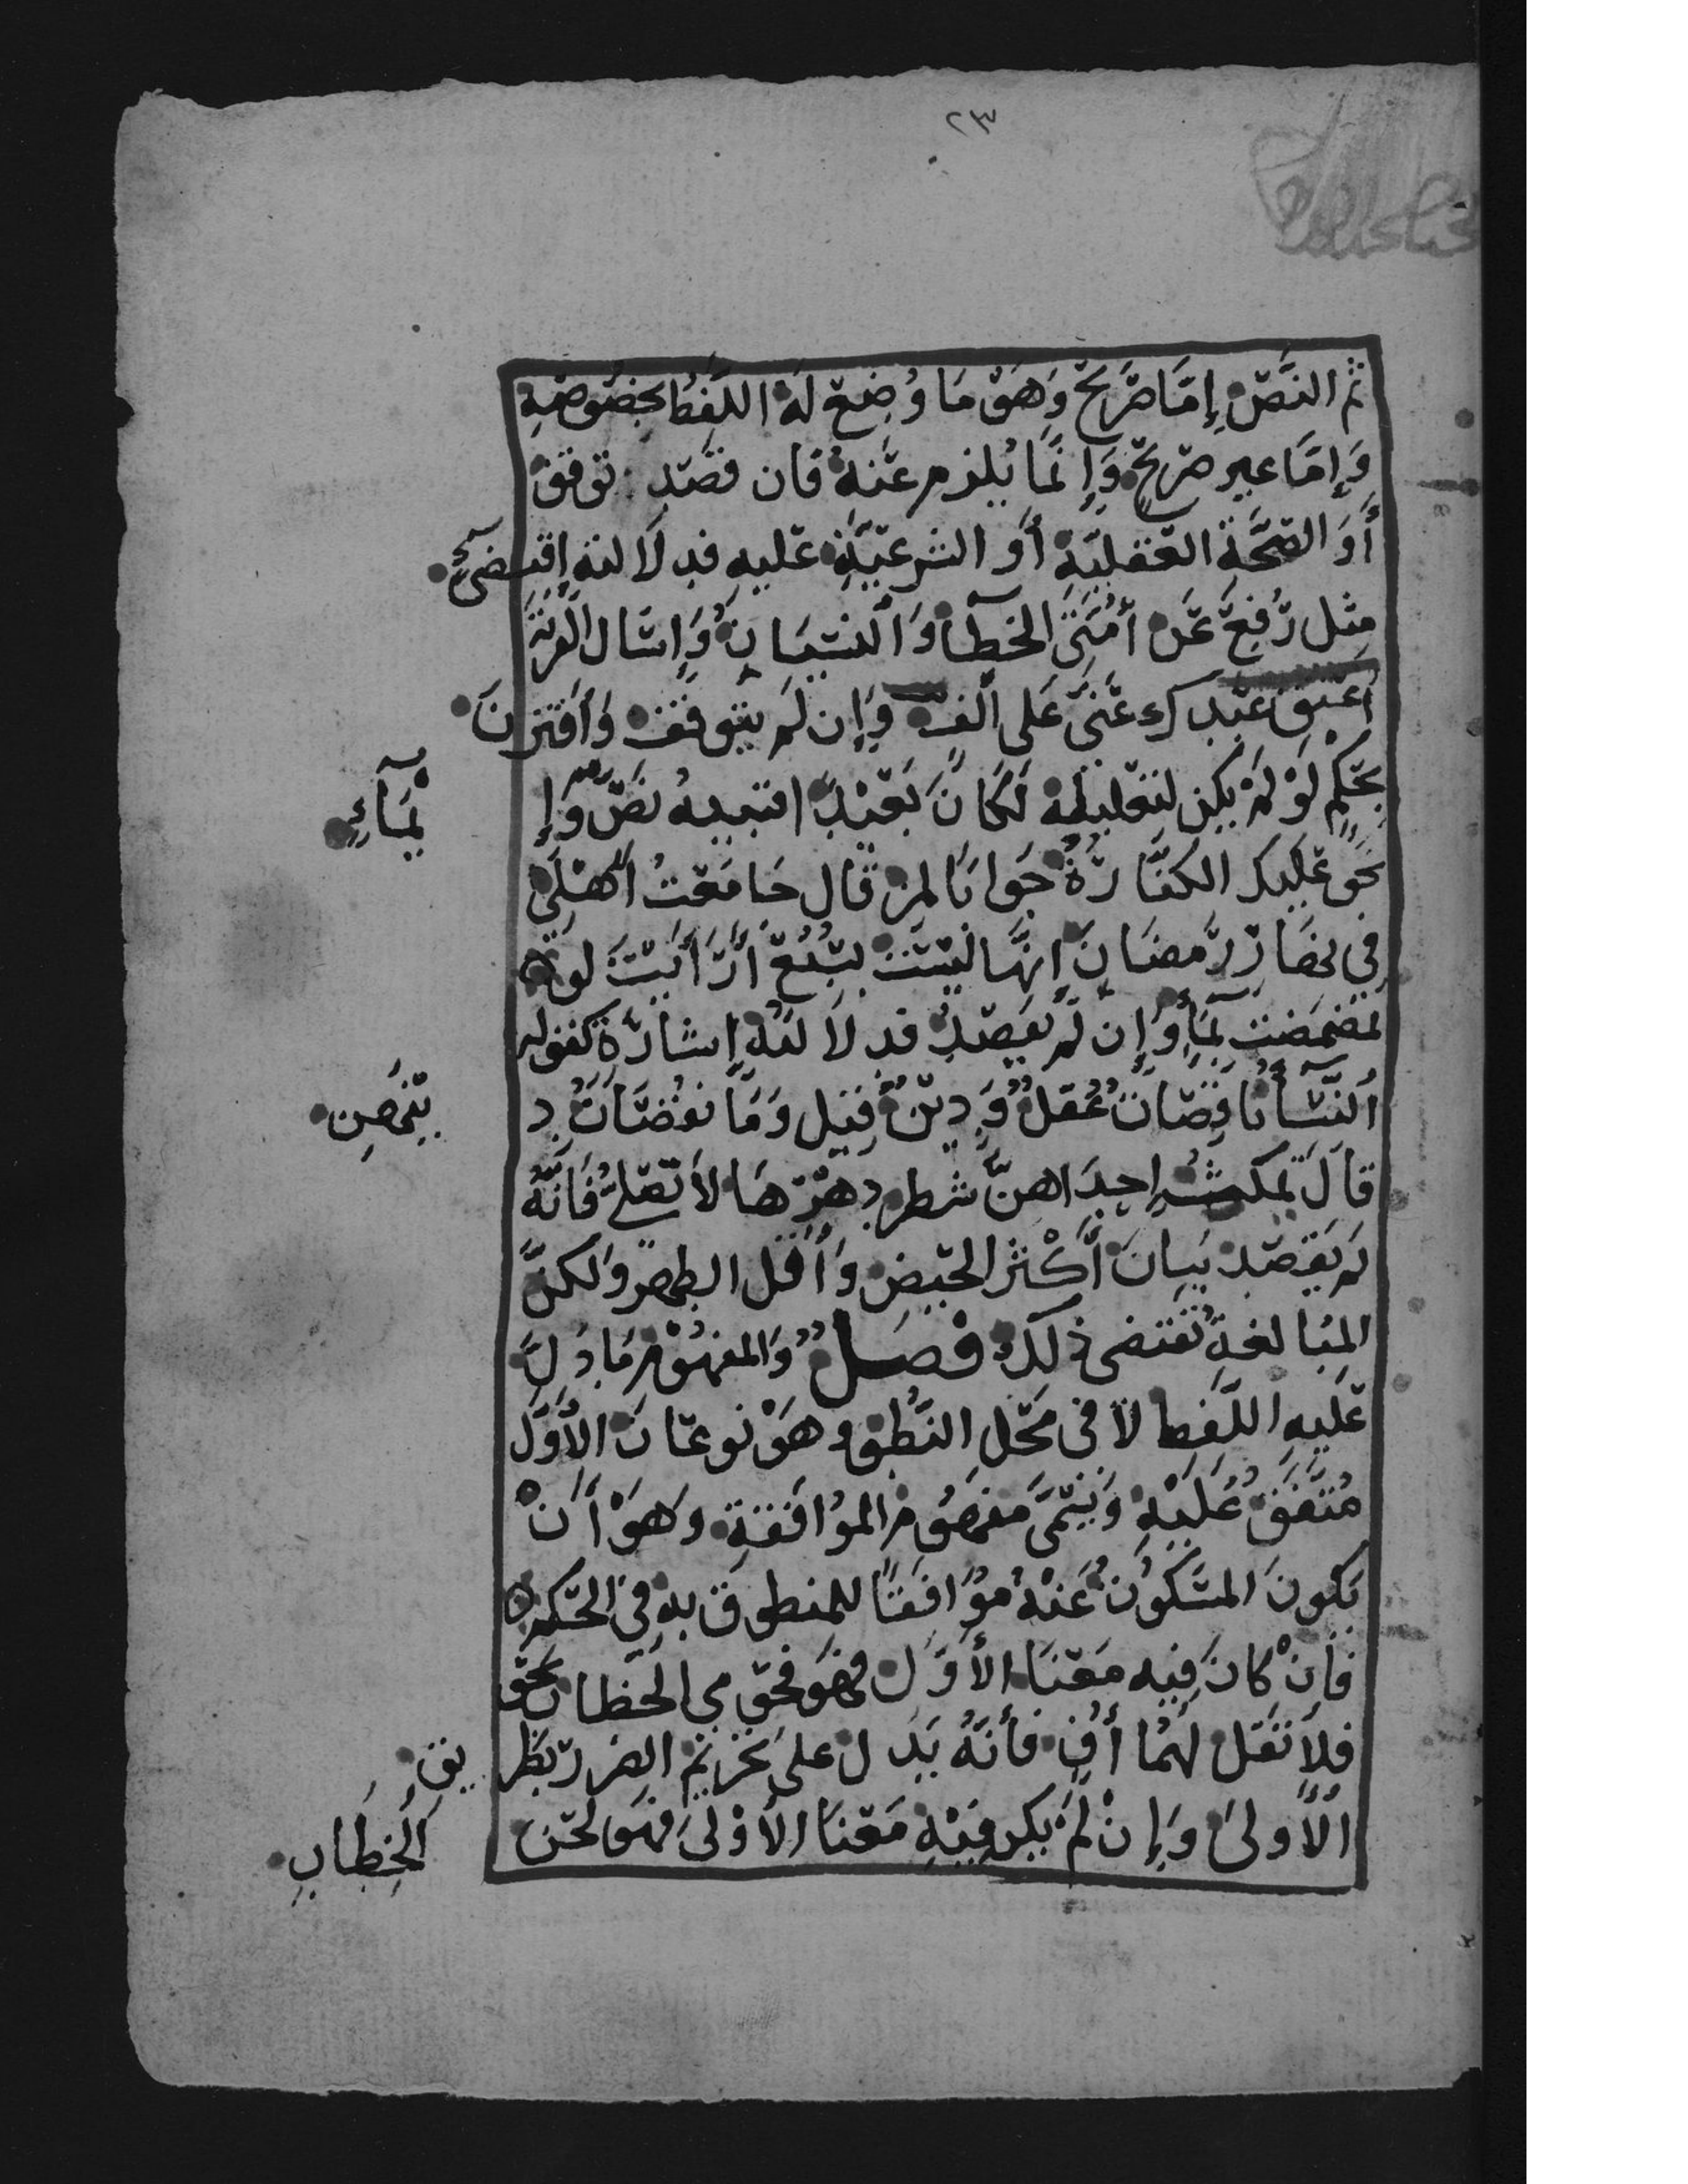 ٢٣
ثم النَّصّ إِمَّا صَرِيحٌ وَهَوَ مَا وُضِعَ لَهُ اللَّفظُ بخصُوصِهِ
وَإِمَّا غير صَرِيحٌ وَإِنَّمَا يُلزم عَنهُ فَان قصَد توقف
أَوَ الصِّحَّةِ العَقلِيَّةِ أَو الشرعِيَّةِ عَليهِ فدلَالة إِقتضَىءٍ
مِثل رُفِعَ عَن أُمَّتِى الخَطآء وَالنسيَانِ وَإِسَال القرية
أعتِق عَبْدك عَنَّى عَلى ألف وَإِن لَم يتوقف وَأقترنَ
بحُكمٍ لَوْ لَمْ يكن لتعليله لَكَانَ بَعَيْداً فتنبيه نصّ وَإِ
يْمَآءِ
نحَو عَليك الكفَّارَةُ جَوَابًا لمن قَال جَامَعَتُ أَهْلى
فِى نَهَارِ رَمضَانَ إِنَّهَا ليْسَت بِسَبُعٍ أَرَأيتَ لو
تمضمَضت بمَآءٍ وَإِن لَم يقصدُ فدلَالةُ إِشَارَة كقوله
أَلنّسَآءُ نَاقصَاتُ عَقلٍ وَدِيْنٍ قيل وَمَا نقصَانُ د
يْنَهِنَ
قَالَ تمكثُ إحدَاهنّ شطر دهْرهَا لَا تصَلّى فَانَّهُ
لَم يَقصَد بيَانَ أَكْثر الحَيض وَأَقَل الطهر وَلكنَّ
المبَالغَةُ تَقتضى ذَلك فصَل وَالمفهُوم مَا دَلَّ
عَليهِ اللَّفظ لَا فى محَلِ النُّطق وهوَ نوعَانَ الأَوَّل
مُتَّفَق عَليْهِ وَيسَمَّى مَفهوُم الموُافَقةِ وَهوَ أَنْ
يَكونَ المسَكوُتُ عَنْهُ موُافِقاً للمنطوق بهِ فى الحَكم
فَإِنْ كَانَ فِيهِ مَعْنَا الأَوْلَى فهَو فحَوى الخطاب نحَو
فلَا تَقل لَهُمَا أُفٍ فأنَّهُ يَدَل عَلى تحَريْم الضرر بطَر يق
الأَولَى وَإِنْ لَم يكن فيْهِ مَعْنَا الأَوْلى فهَو لَحَن
الخِطَابِ